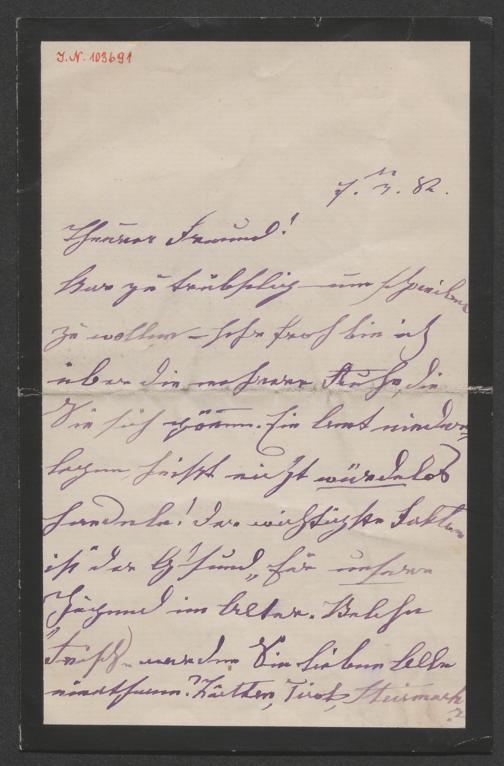 I.N. 103691
7. 3. 82.
Theurer Freund!
War zu trübselig um schreiben
zu wollen – sehr froh bin ich
über die mehrere Ruhe, die
Sie sich gönnen. Ein Amt nieder-
legen heißt nicht würdelos
handeln! Der wichtigste Faktor
ist der G'sund, für unsere
Jugend im Alter. Welche
"Frische" werden Sie lieben
Kärnten, Tirol, Steiermark
?